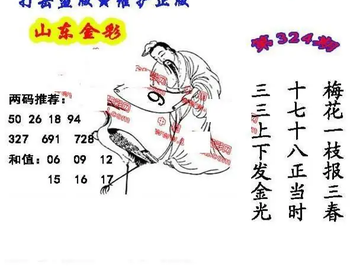 打击盗版更维护正版
山东金彩
第324期
两码推荐:
50 26 18 94
327 691 728
和值: 06 09 12
15 16 17
9
梅花一枝报三春
十七十八正当时
三三上下发金光